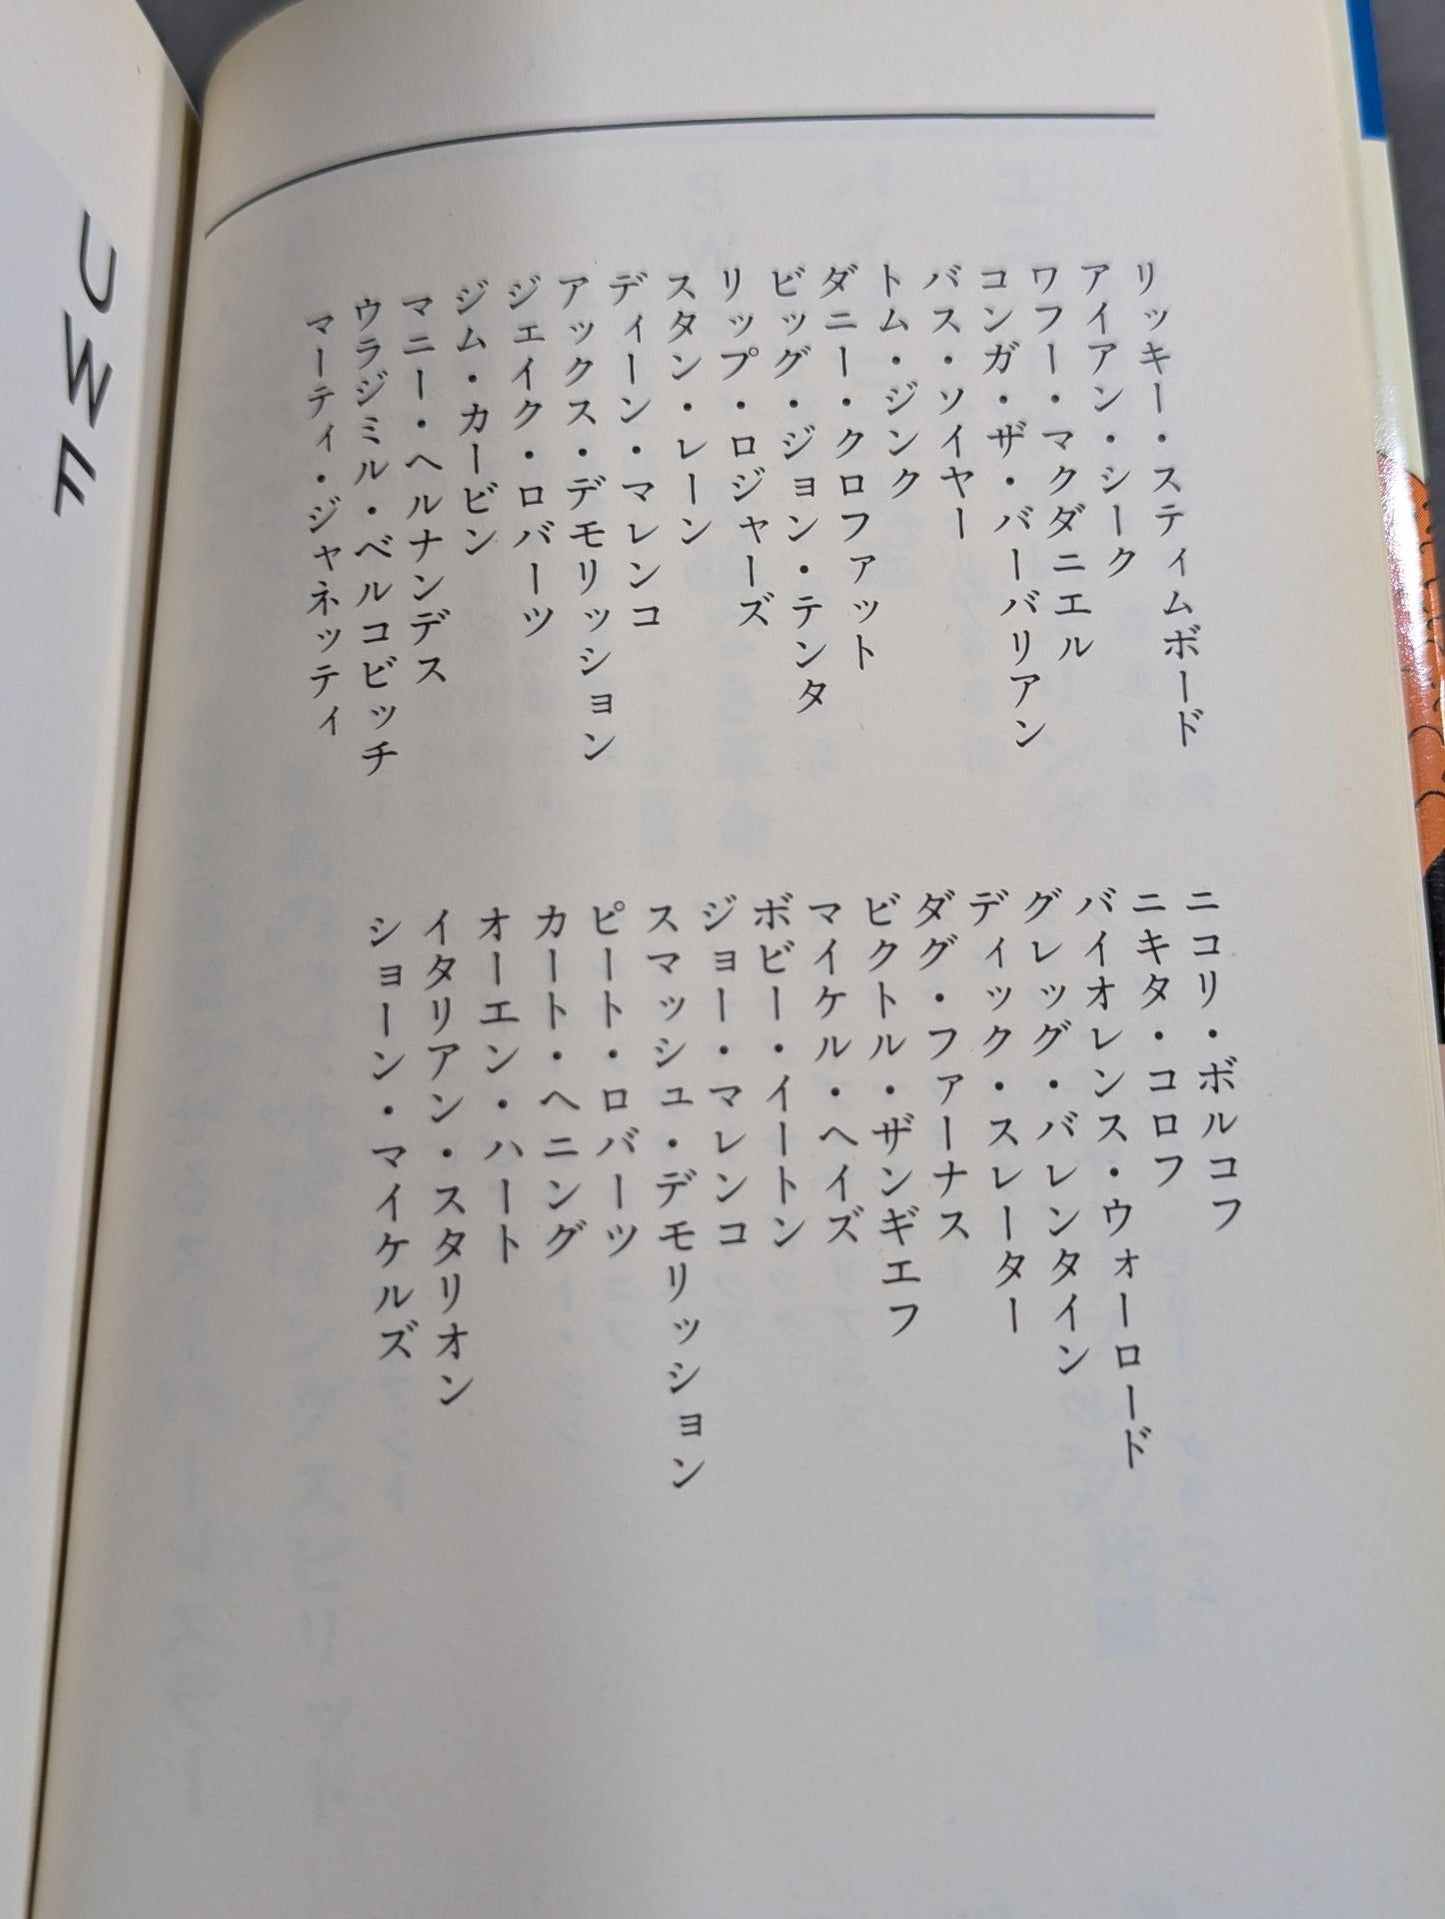 リッキー・スティムボード
アイアン・シーク
ワフー・マクダニエル
コンガ・ザ・バーバリアン
バス・ソイヤー
トム・ジンク
ダニー・クロファット
ビッグ・ジョン・テンタ
リップ・ロジャーズ
スタン・レーン
ディーン・マレンコ
アックス・デモリッション
ジェイク・ロバーツ
ジム・カービン
マニー・ヘルナンデス
ウラジミル・ベルコビッチ
マーティ・ジャネッティ
ニコリ・ボルコフ
ニキタ・コロフ
バイオレンス・ウォーロード
グレッグ・バレンタイン
ディック・スレーター
ダグ・ファーナス
ビクトル・ザンギエフ
マイケル・ヘイズ
ボビー・イートン
ジョー・マレンコ
スマッシュ・デモリッション
ピート・ロバーツ
カート・ヘニング
オーエン・ハート
イタリアン・スタリオン
ショーン・マイケルズ
UWF